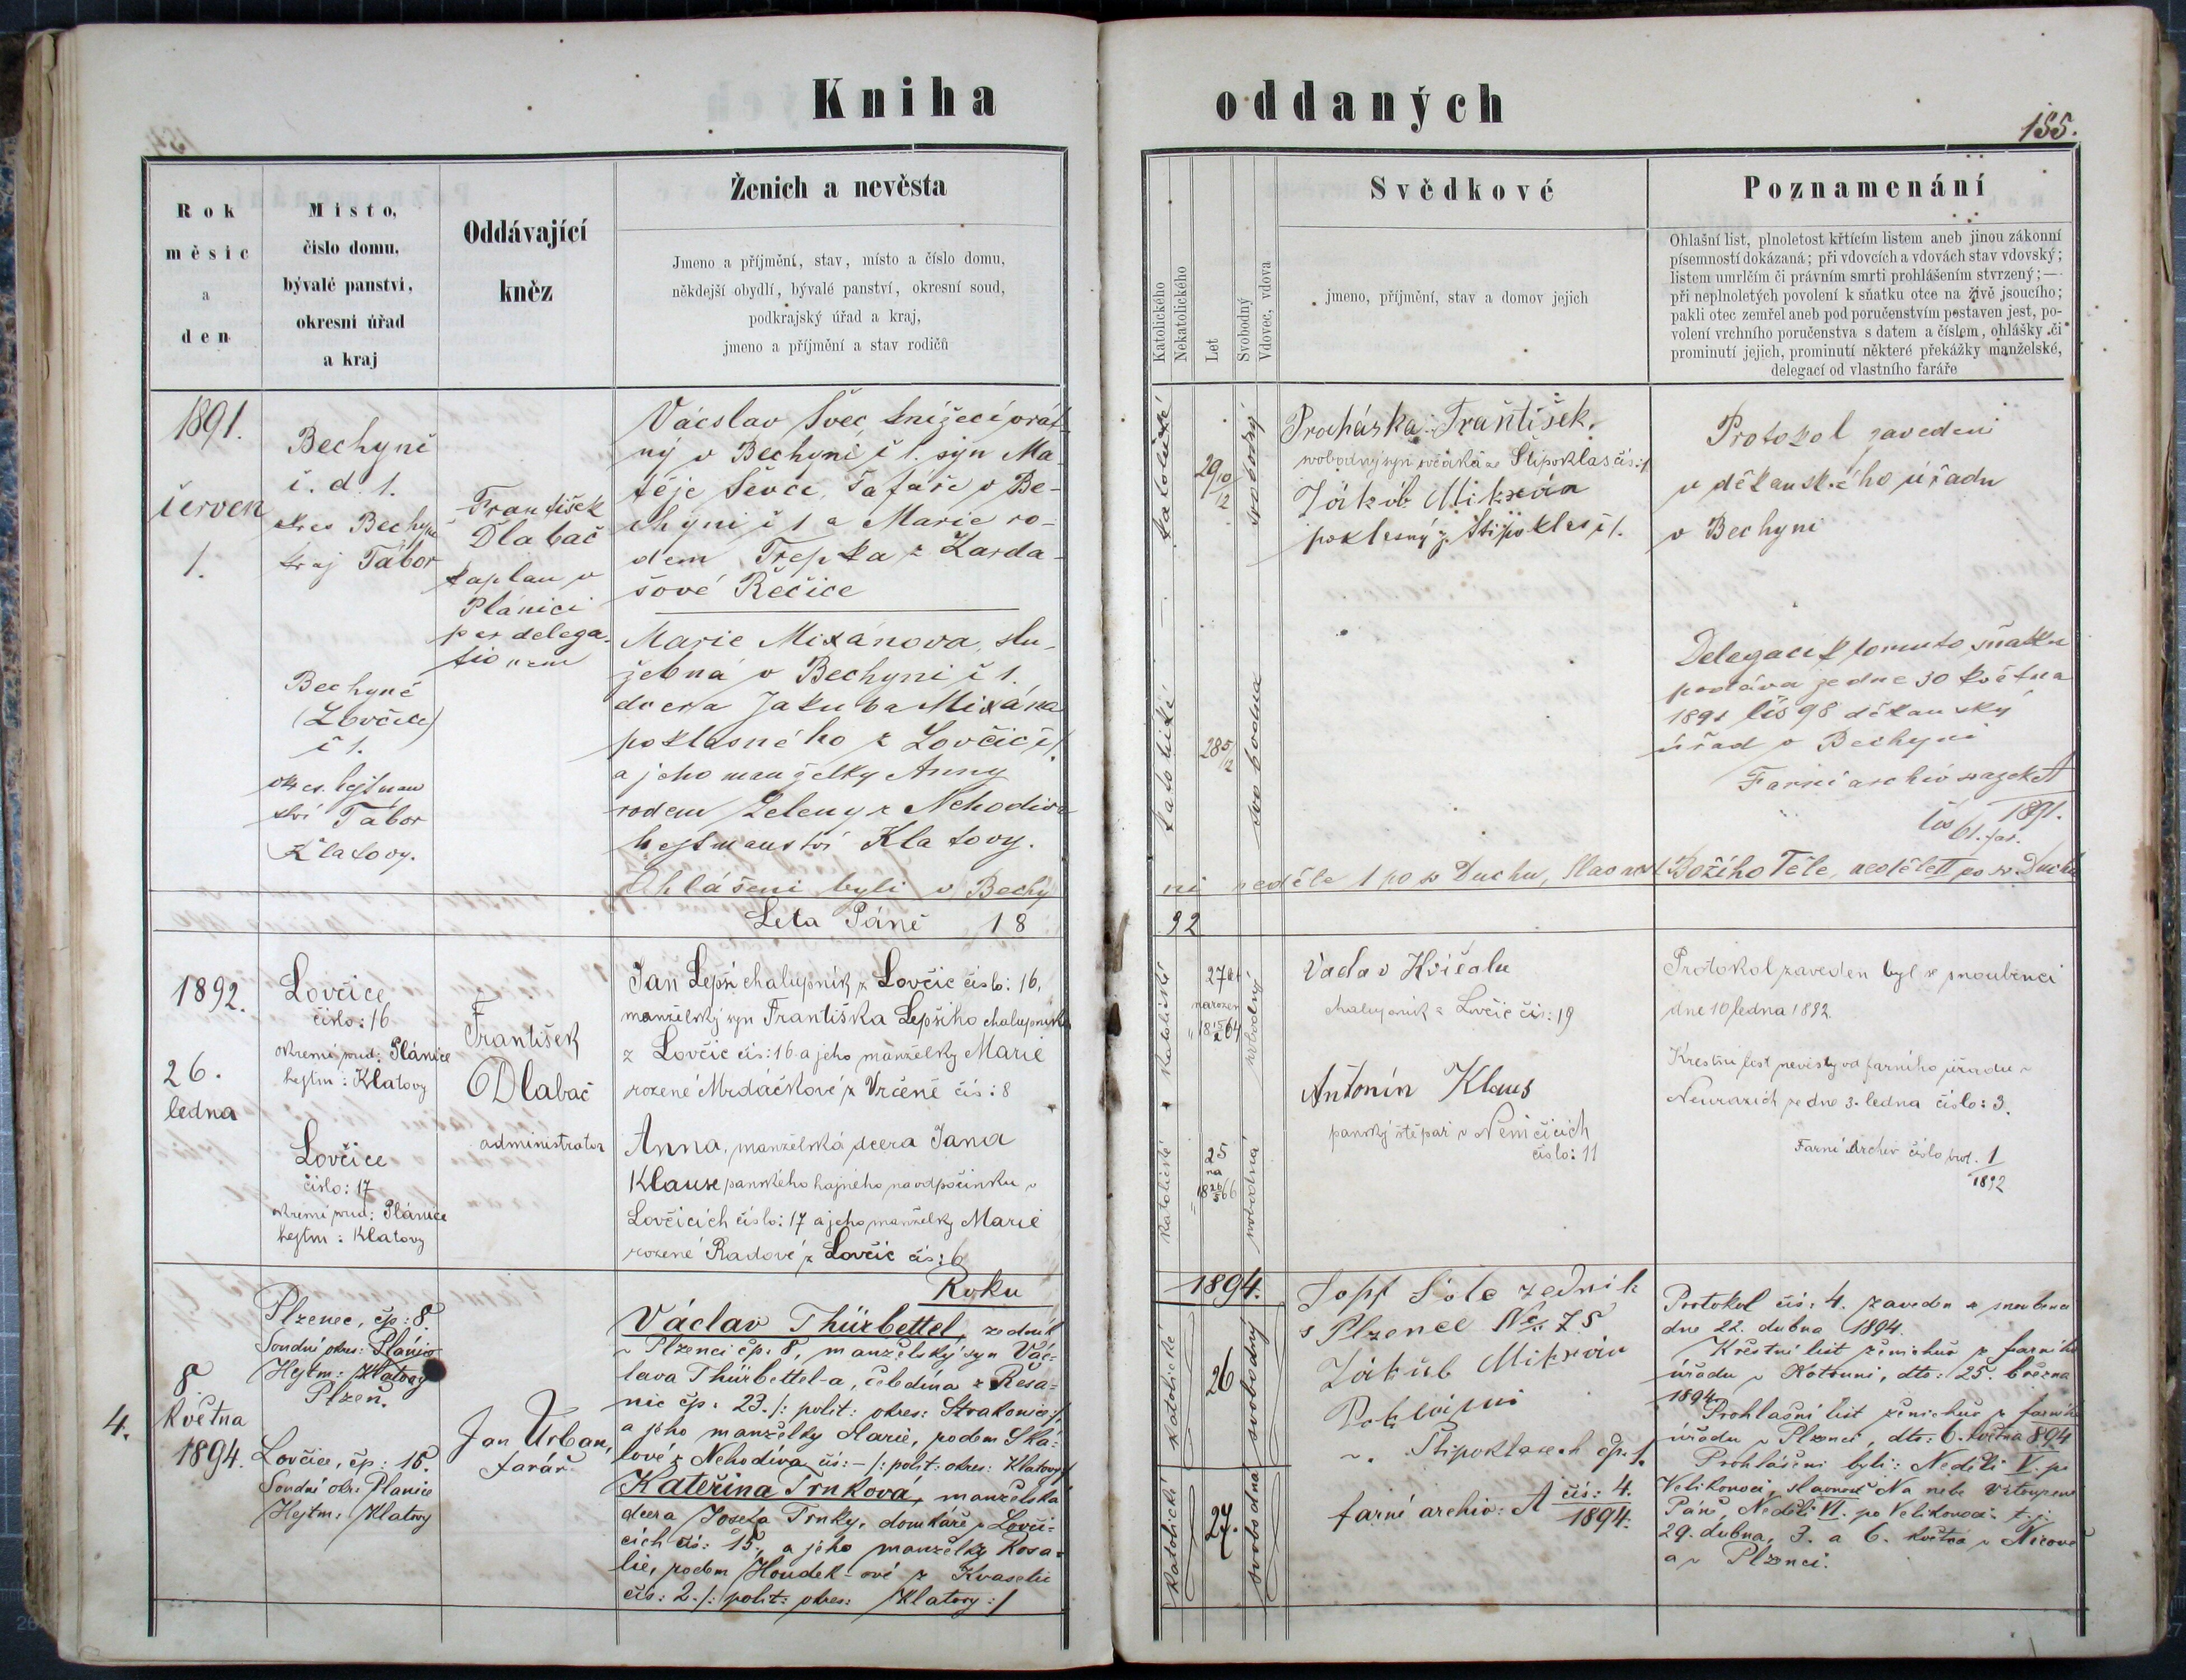 Kniha oddaných
155.
Rok
měsíc
a
den
Místo,
číslo domu,
bývalé panství,
okresní úřad
a kraj
Oddávající
kněz
Ženich a nevěsta
Jmeno a příjmění, stav, místo a číslo domu,
někdejší obydlí, bývalé panství, okresní soud,
podkrajský úřad a kraj,
jmeno a příjmění a stav rodičů
Katolického
Nekatolického
Let
Svobodný
Vdovec, vdova
Svědkové
jmeno, příjmění, stav a domov jejich
Poznamenání
Ohlašní list, plnoletost křtícím listem aneb jinou zákonní
písemností dokázaná; při vdovcích a vdovách stav vdovský;
listem umrlčím či právním smrti prohlášením stvrzený;—
při neplnoletých povolení k sňatku otce na živě jsoucího;
pakli otec zemřel aneb pod poručenstvím postaven jest, po-
volení vrchního poručenstva s datem a číslem, ohlášky či
prominutí jejich, prominutí některé překážky manželské,
delegací od vlastního faráře
1891.
červen
1.
Bechyně
č. d. 1.
okres Bechyně
kraj Tábor
Bechyně
(Lovčice)
č 1.
okres. hejtman
ství Tábor
Klatovy.
František
Dlabač
kaplan v
Plánici
per delega-
tionem
Václav Švec, knížecí vrát-
ný v Bechyni č 1. syn Ma-
těje Ševce, šafáře v Be-
chyni č 1 a Marie ro-
dem Trepka z Karda-
šové Řečice
Marie Mixánova, slu-
žebná v Bechyni č 1.
dcera Jakuba Mixána
poklasného z Lovčic č 1.
a jeho manželky Anny
rodem Zeleny z Nehodiva
hejtmanství Klatovy.
Ohlášeni byli v Bechy
ni neděle 1 po sv Duchu, Slavnost Božího Těla, neděle II po sv. Duchu
katolické
29 10/12
svobodný
katolické
28 5/12
svobodna
Procháska František
svobodný syn ovčáka ze Štipoklas čís: 1
Jakub Mikscán
poklasný z Štipoklas č 1.
Protokol zavedeni
u děkanského úřadu
v Bechyni
Delegaci k tomuto sňatku
podává ze dne 30 května
1891 čís 98 děkanský
úřad v Bechyni
Farní archiv
1891.
Leta Páně 18 92
1892.
26.
ledna
Lovčice
číslo: 16
okresní soud: Plánice
hejtm: Klatovy
Lovčice
číslo: 17
okresní soud: Plánice
hejtm: Klatovy
František
Dlabač
administrator
Jan Lepší chalupník z Lovčic číslo: 16,
manželský syn Františka Lepšího chalupníka
z Lovčic čís: 16 a jeho manželky Marie
rozené Mrdáčkové z Vrčeně čís: 8
Anna, manželská dcera Jana
Klause panského hajného na odpočinku v
Lovčicích číslo: 17 a jeho manželky Marie
rozené Radové z Lovčic čís: 6
katolické
27 let
narozen
svobodný
katolické
25
na
svobodná
Václav Kvičala
chalupník z Lovčic čís: 19
Antonín Klaus
panský štěpař v Nemčicích
číslo: 11
Protokol zaveden byl se snoubenci
dne 10 ledna 1892.
Křestní list nevěsty od farního úřadu v
Neurazích ze dne 3. ledna číslo: 3.
Farní Archiv číslo prot. 1/1892
Roku 1894.
4.
8
května
1894.
Plzenec, čp: 8.
Soudní okres: Plánice
Hejtm: Klatovy
Plzeň.
Lovčice, čp: 15.
Soudní okr: Planice
Hejtm: Klatovy
Jan Urban,
farář
Václav Thürbettel, zedník
v Plzenci čp: 8, manželský syn Vác-
lava Thürbettel-a, čeledína z Řesa-
nic čp: 23. /: polit: okres: Strakonice :/,
a jeho manželky Marie, rodem Ská-
lové z Nehodiva čís: – /: polit: okres: Klatovy :/
Kateřina Trnková, manželská
dcera Josefa Trnky, domkáře v Lovči-
cích čís: 15, a jeho manželky Rosa-
lie, rodem Houdek-ové z Kvasetic
čís: 2. /: polit: okres: Klatovy :/
katolické
26
svobodný
katolické
27.
svobodná
zedník
z Plzence No 75
Jakub Mikscán
Poklasný
v Štipoklasech čp. 1.
farní archiv: A čís: 4./1894.
Protokol čís: 4. zaveden se snoubenci
dne 22. dubna 1894.
Křestní list ženichův z farního
úřadu v Kotouni, dto: 25. března
1894.
Prohlašní list ženichův z farního
úřadu v Plzenci, dto: 6. května 894
Prohlášeni byli: Neděli V. po
Velikonoci, slavnosť Na nebe Vstoupení
Páně, Neděli VI. po Velikonoci: t. j:
29. dubna, 3. a 6. května v Nicově
a v Plzenci.